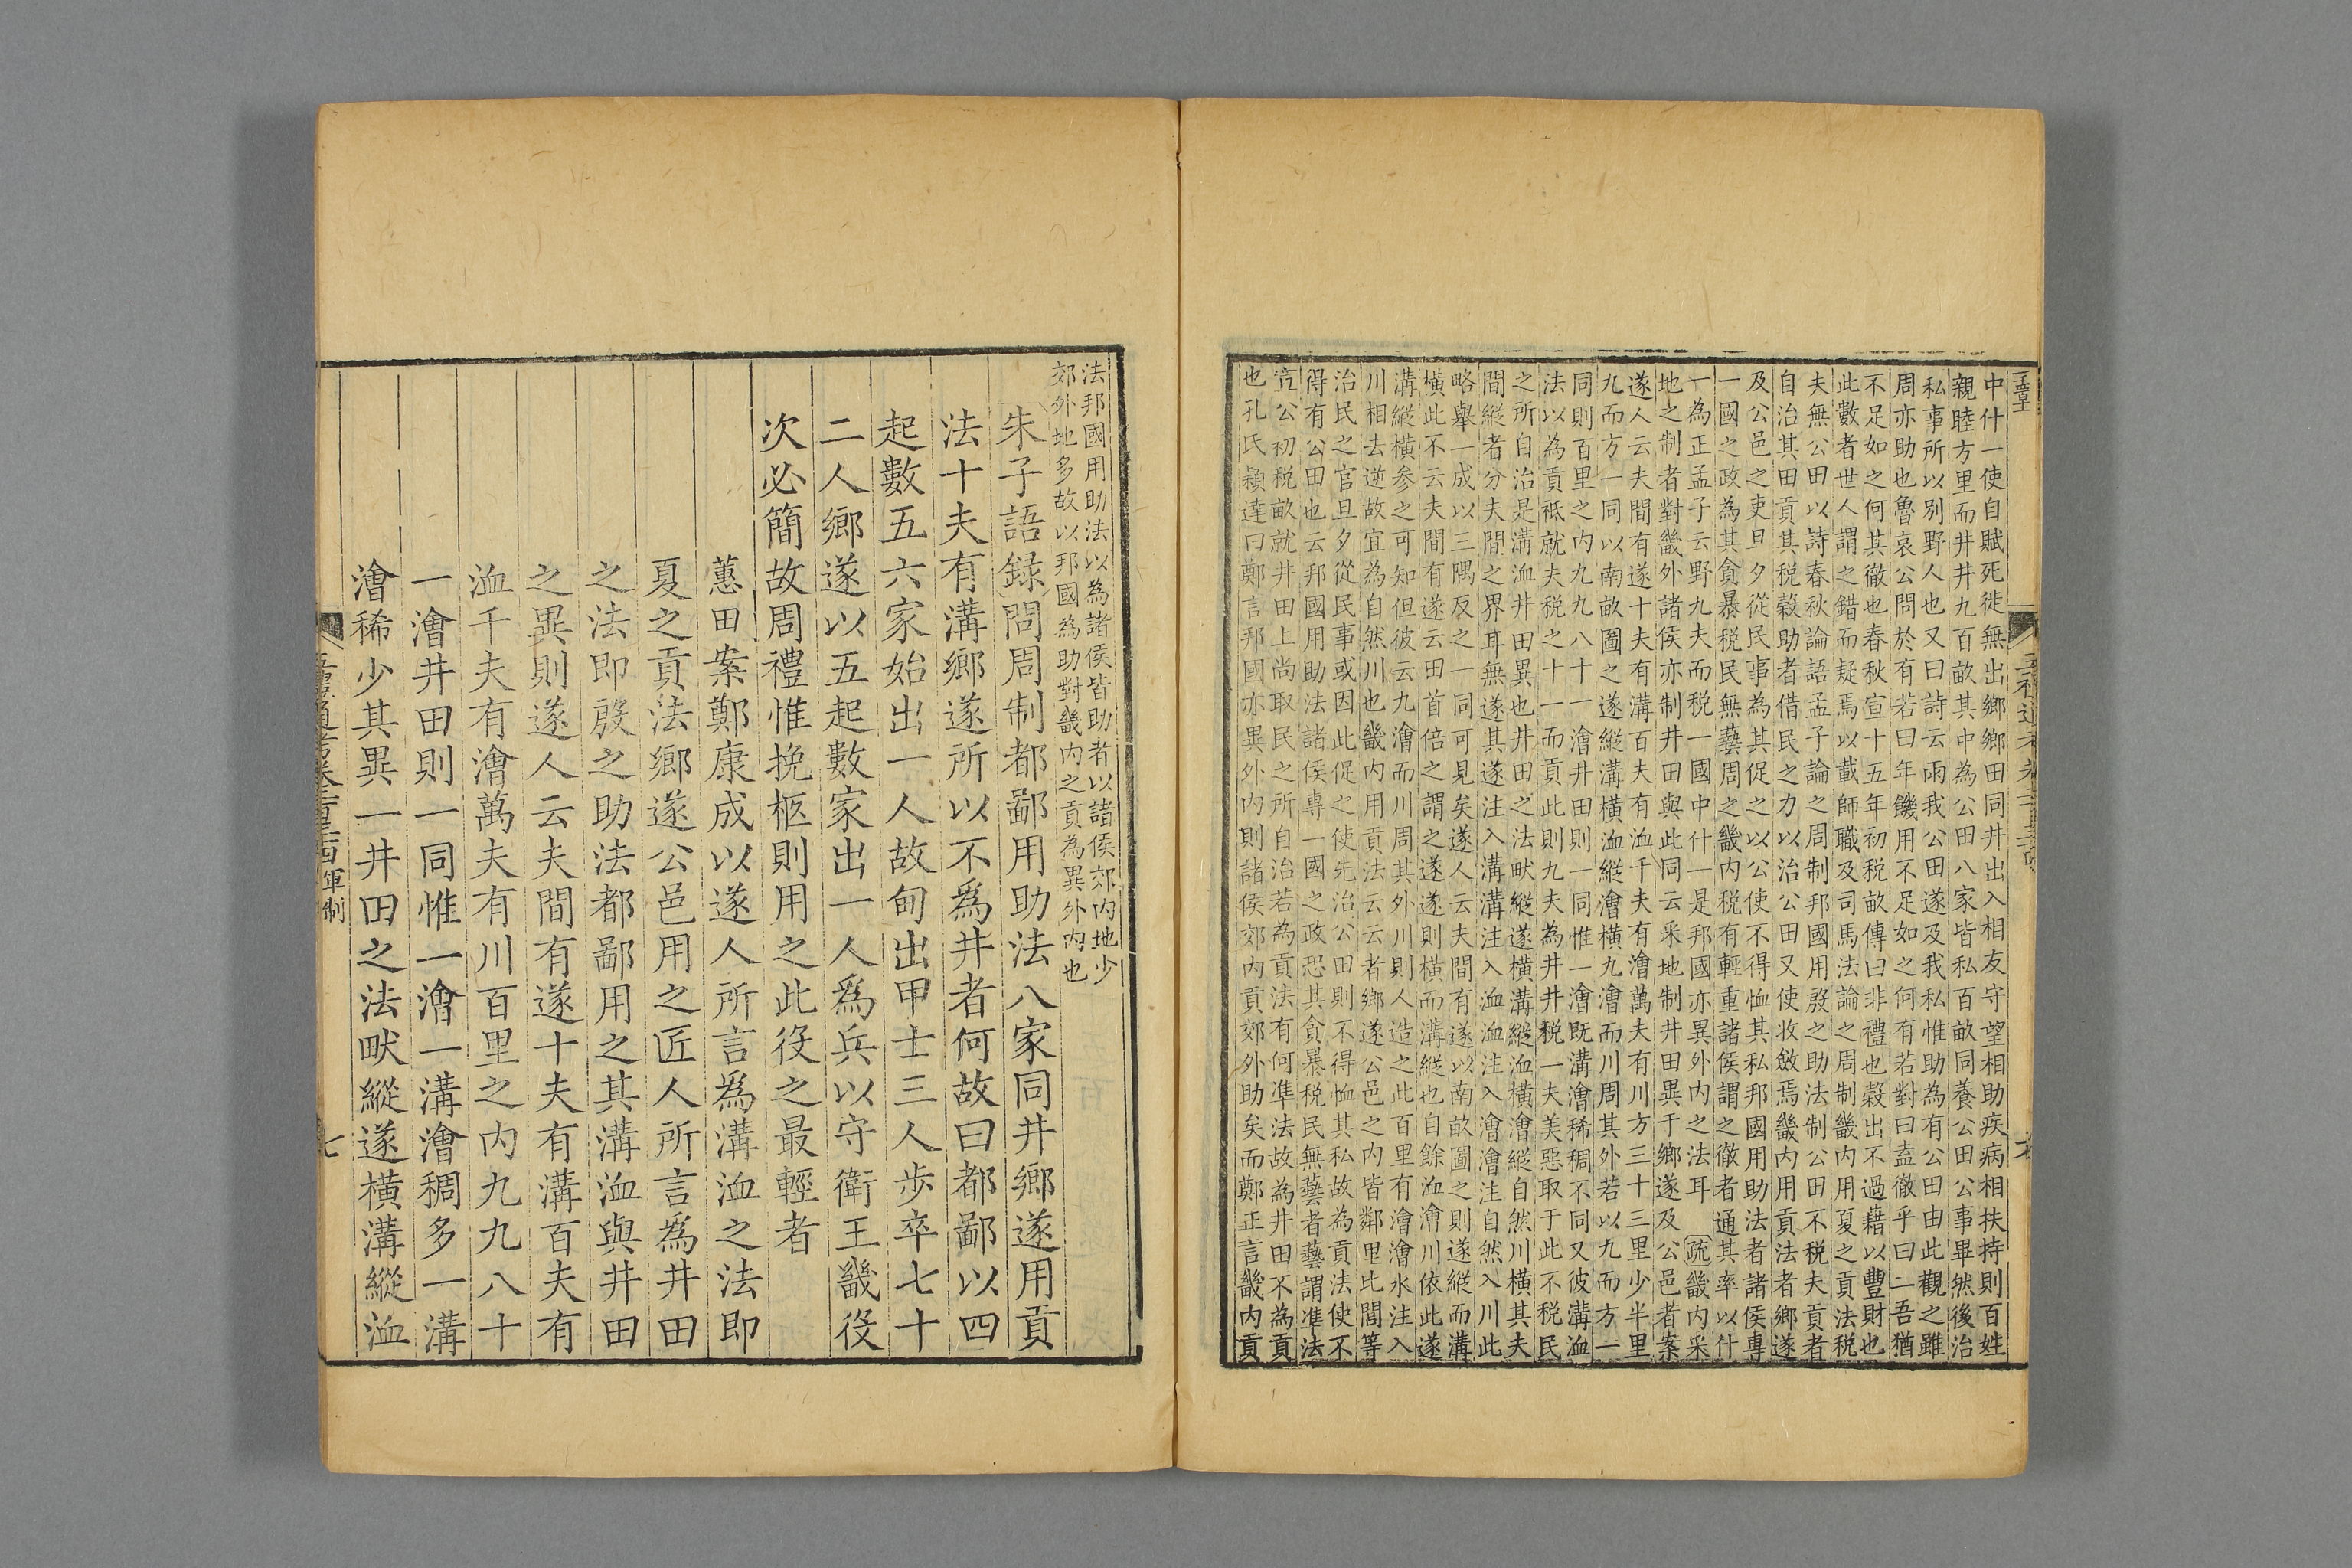 中什一使自賦死徙無出鄉鄉田同井出入相友守望相助疾病相扶持則百姓
親睦方里而井井九百畝其中為公田八家皆私百畝同養公田公事畢然後治
私事所以別野人也又曰詩云雨我公田遂及我私惟助為有公田由此觀之雖
周亦助也魯哀公問於有若曰年饑用不足如之何有若對曰盍徹乎曰二吾猶
不足如之何其徹也春秋宣十五年初稅畝傳曰非禮也穀出不過藉以豐財也
此數者世人謂之錯而疑焉以載師職及司馬法論之周制畿內用夏之貢法稅
夫無公田以詩春秋論語孟子論之周制邦國用殷之助法制公田不稅夫貢者
自治其田貢其稅穀助者借民之力以治公田又使收斂焉畿內用貢法者鄉遂
及公邑之吏旦夕從民事為其促之以公使不得恤其私邦國用助法者諸侯專
一國之政為其貪暴稅民無藝周之畿內稅有輕重諸侯謂之徹者通其率以什
一為正孟子云野九夫而稅一國中什一是邦國亦異外內之法耳 疏畿內采
地之制者對畿外諸侯亦制井田與此同云采地制井田異于鄉遂及公邑者案
遂人云夫間有遂十夫有溝百夫有洫千夫有澮萬夫有川方三十三里少半里
九而方一同以南畝圖之遂縱溝橫洫縱澮橫九澮而川周其外若以九而方一
同則百里之內九九八十一澮井田則一同惟一澮既溝澮稀稠不同又彼溝洫
法以為貢祗就夫稅之十一而貢此則九夫為井井稅一夫美惡取于此不稅民
之所自治是溝洫井田異也井田之法畎縱遂橫溝縱洫橫澮縱自然川橫其夫
間縱者分夫間之界耳無遂其遂注入溝溝注入洫洫注入澮澮注自然入川此
略舉一成以三隅反之一同可見矣遂人云夫間有遂以南畝圖之則遂縱而溝
橫此不云夫間有遂云田首倍之謂之遂遂則橫而溝縱也自餘洫澮川依此遂
溝縱橫參之可知但彼云九澮而川周其外川則人造之此百里有澮澮水注入
川相去逆故宜為自然川也畿內用貢法云云者鄉遂公邑之內皆鄰里比閭等
治民之官旦夕從民事或因此促之使先治公田則不得恤其私故為貢法使不
得有公田也云邦國用助法諸侯專一國之政恐其貪暴稅民無藝者藝謂準法
宣公初稅畝就井田上尚取民之所自治若為貢法有何準法故為井田不為貢
也孔氏穎達曰鄭言邦國亦異外內則諸侯郊內貢郊外助矣而鄭正言畿內貢
法邦國用助法以為諸侯皆助者以諸侯郊內地少
郊外地多故以邦國為助對畿內之貢為異外內也
朱子語錄問周制都鄙用助法八家同井鄉遂用貢
法十夫有溝鄉遂所以不爲井者何故曰都鄙以四
起數五六家始出一人故甸出甲士三人步卒七十
二人鄉遂以五起數家出一人爲兵以守衛王畿役
次必簡故周禮惟挽柩則用之此役之最輕者
蕙田案鄭康成以遂人所言爲溝洫之法即
夏之貢法鄉遂公邑用之匠人所言爲井田
之法即殷之助法都鄙用之其溝洫與井田
之異則遂人云夫間有遂十夫有溝百夫有
洫千夫有澮萬夫有川百里之內九九八十
一澮井田則一同惟一澮一溝澮稠多一溝
澮稀少其異一井田之法畎縱遂橫溝縱洫
七